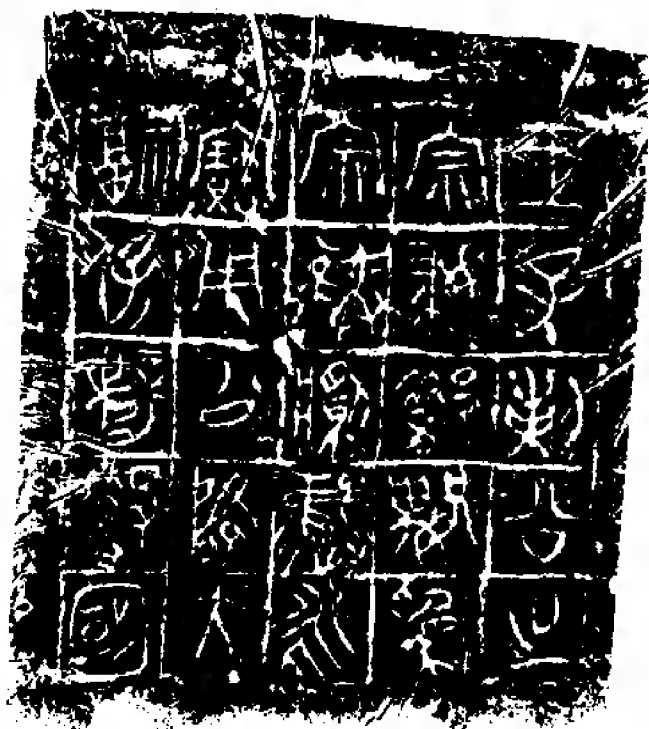 王子剌公之
宗婦嬰為
宗彝𩰫彝永
寶用以降大
福保辥國